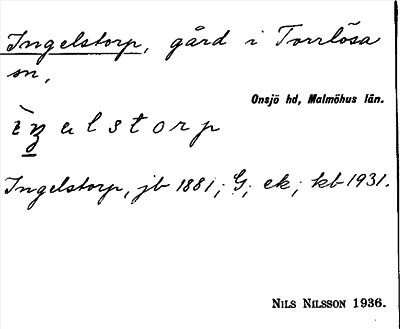 Ingelstorp, gård i Torrlösa
sn,
Onsjö hd, Malmöhus län.
ìŋalstorp
Ingelstorp, jb 1881; G; ek; kb 1931.
NILS NILSSON 1936.